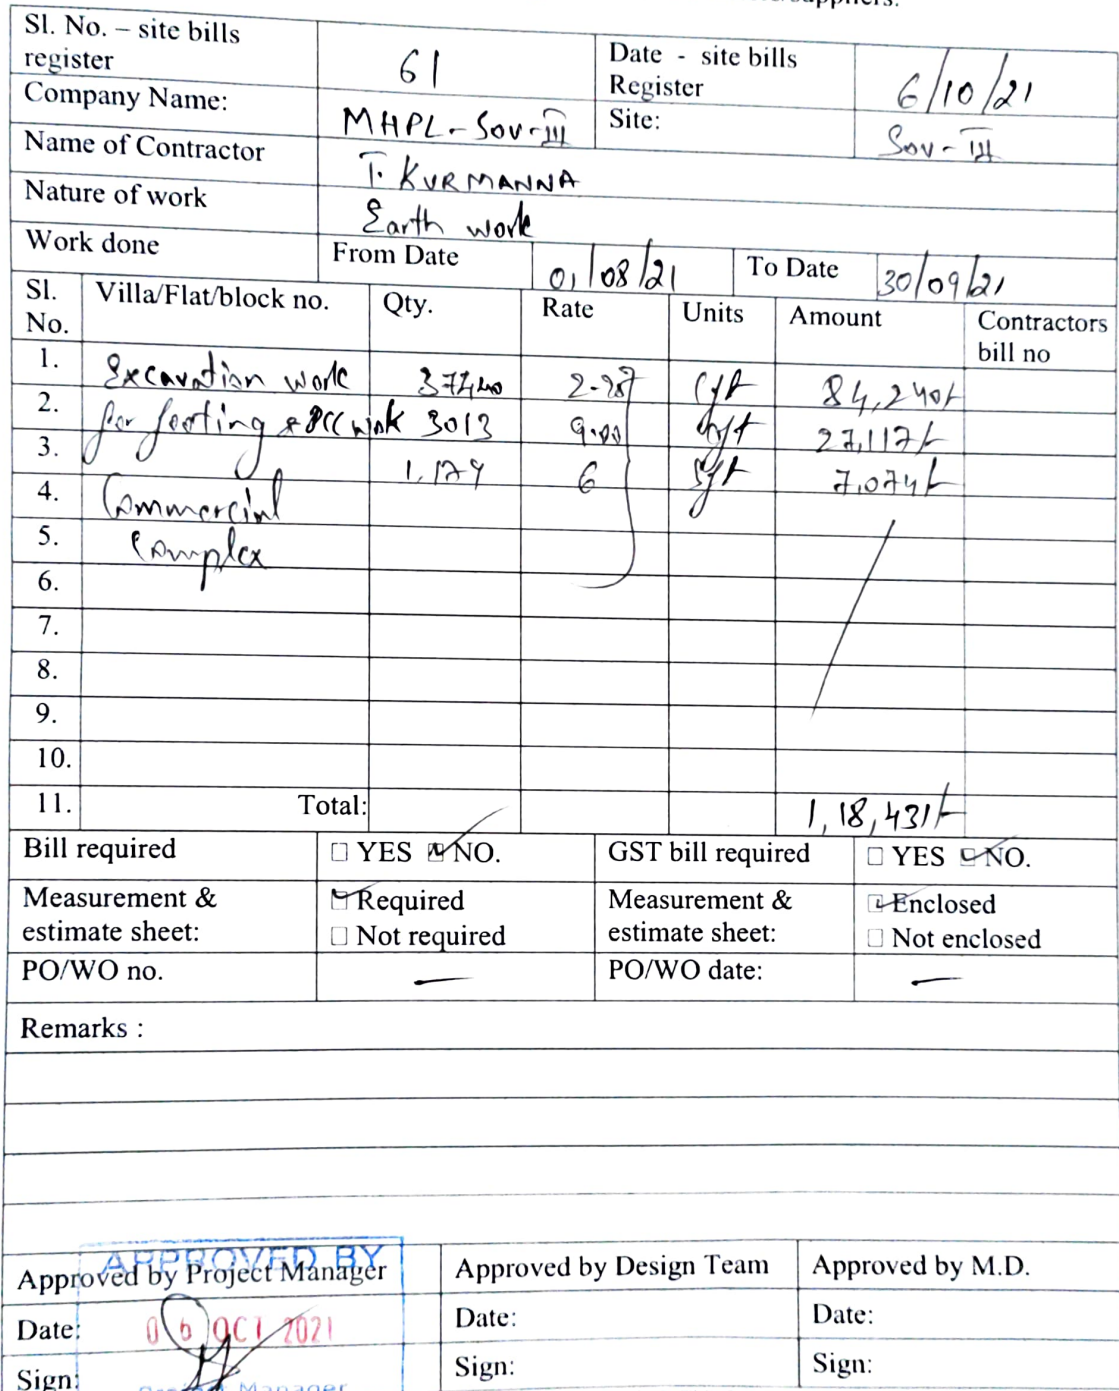 suppliers.
Sl. No. – site bills register 61 Date - site bills Register 6/10/21
Company Name: MHPL-Sov-III Site: Sov-III
Name of Contractor T. KURMANNA
Nature of work Earth work
Work done From Date 01/08/21 To Date 30/09/21
Sl. No. Villa/Flat/block no. Qty. Rate Units Amount Contractors bill no
1. Excavation work 37440 Cft 84,240/-
2. for footing & PCC work 3013 9.00 27,117/-
3. 1,179 6 Sft 7,074/-
4. Commercial
5. Complex
6.
7.
8.
9.
10.
11. Total: 1,18,431/-
Bill required YES NO. GST bill required YES NO.
Measurement & estimate sheet: Required Not required Measurement & estimate sheet: Enclosed Not enclosed
PO/WO no. — PO/WO date: —
Remarks :
APPROVED BY
Approved by Project Manager Approved by Design Team Approved by M.D.
Date: 06 OCT 2021 Date: Date:
Sign: Sign: Sign:
Project Manager